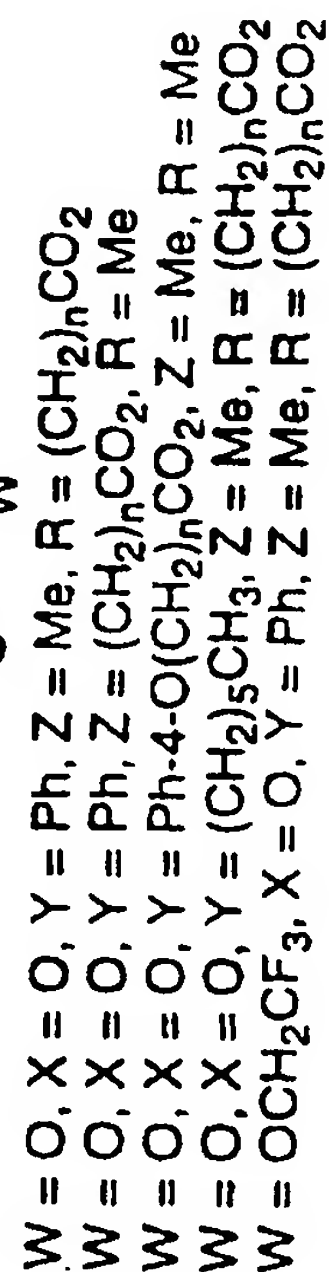 W = O, X = O, Y = Ph, Z = Me, R = (CH₂)ₙCO₂
W = O, X = O, Y = Ph, Z = (CH₂)ₙCO₂, R = Me
W = O, X = O, Y = Ph-4-O(CH₂)ₙCO₂, Z = Me, R = Me
W = O, X = O, Y = (CH₂)₅CH₃, Z = Me, R = (CH₂)ₙCO₂
W = OCH₂CF₃, X = O, Y = Ph, Z = Me, R = (CH₂)ₙCO₂